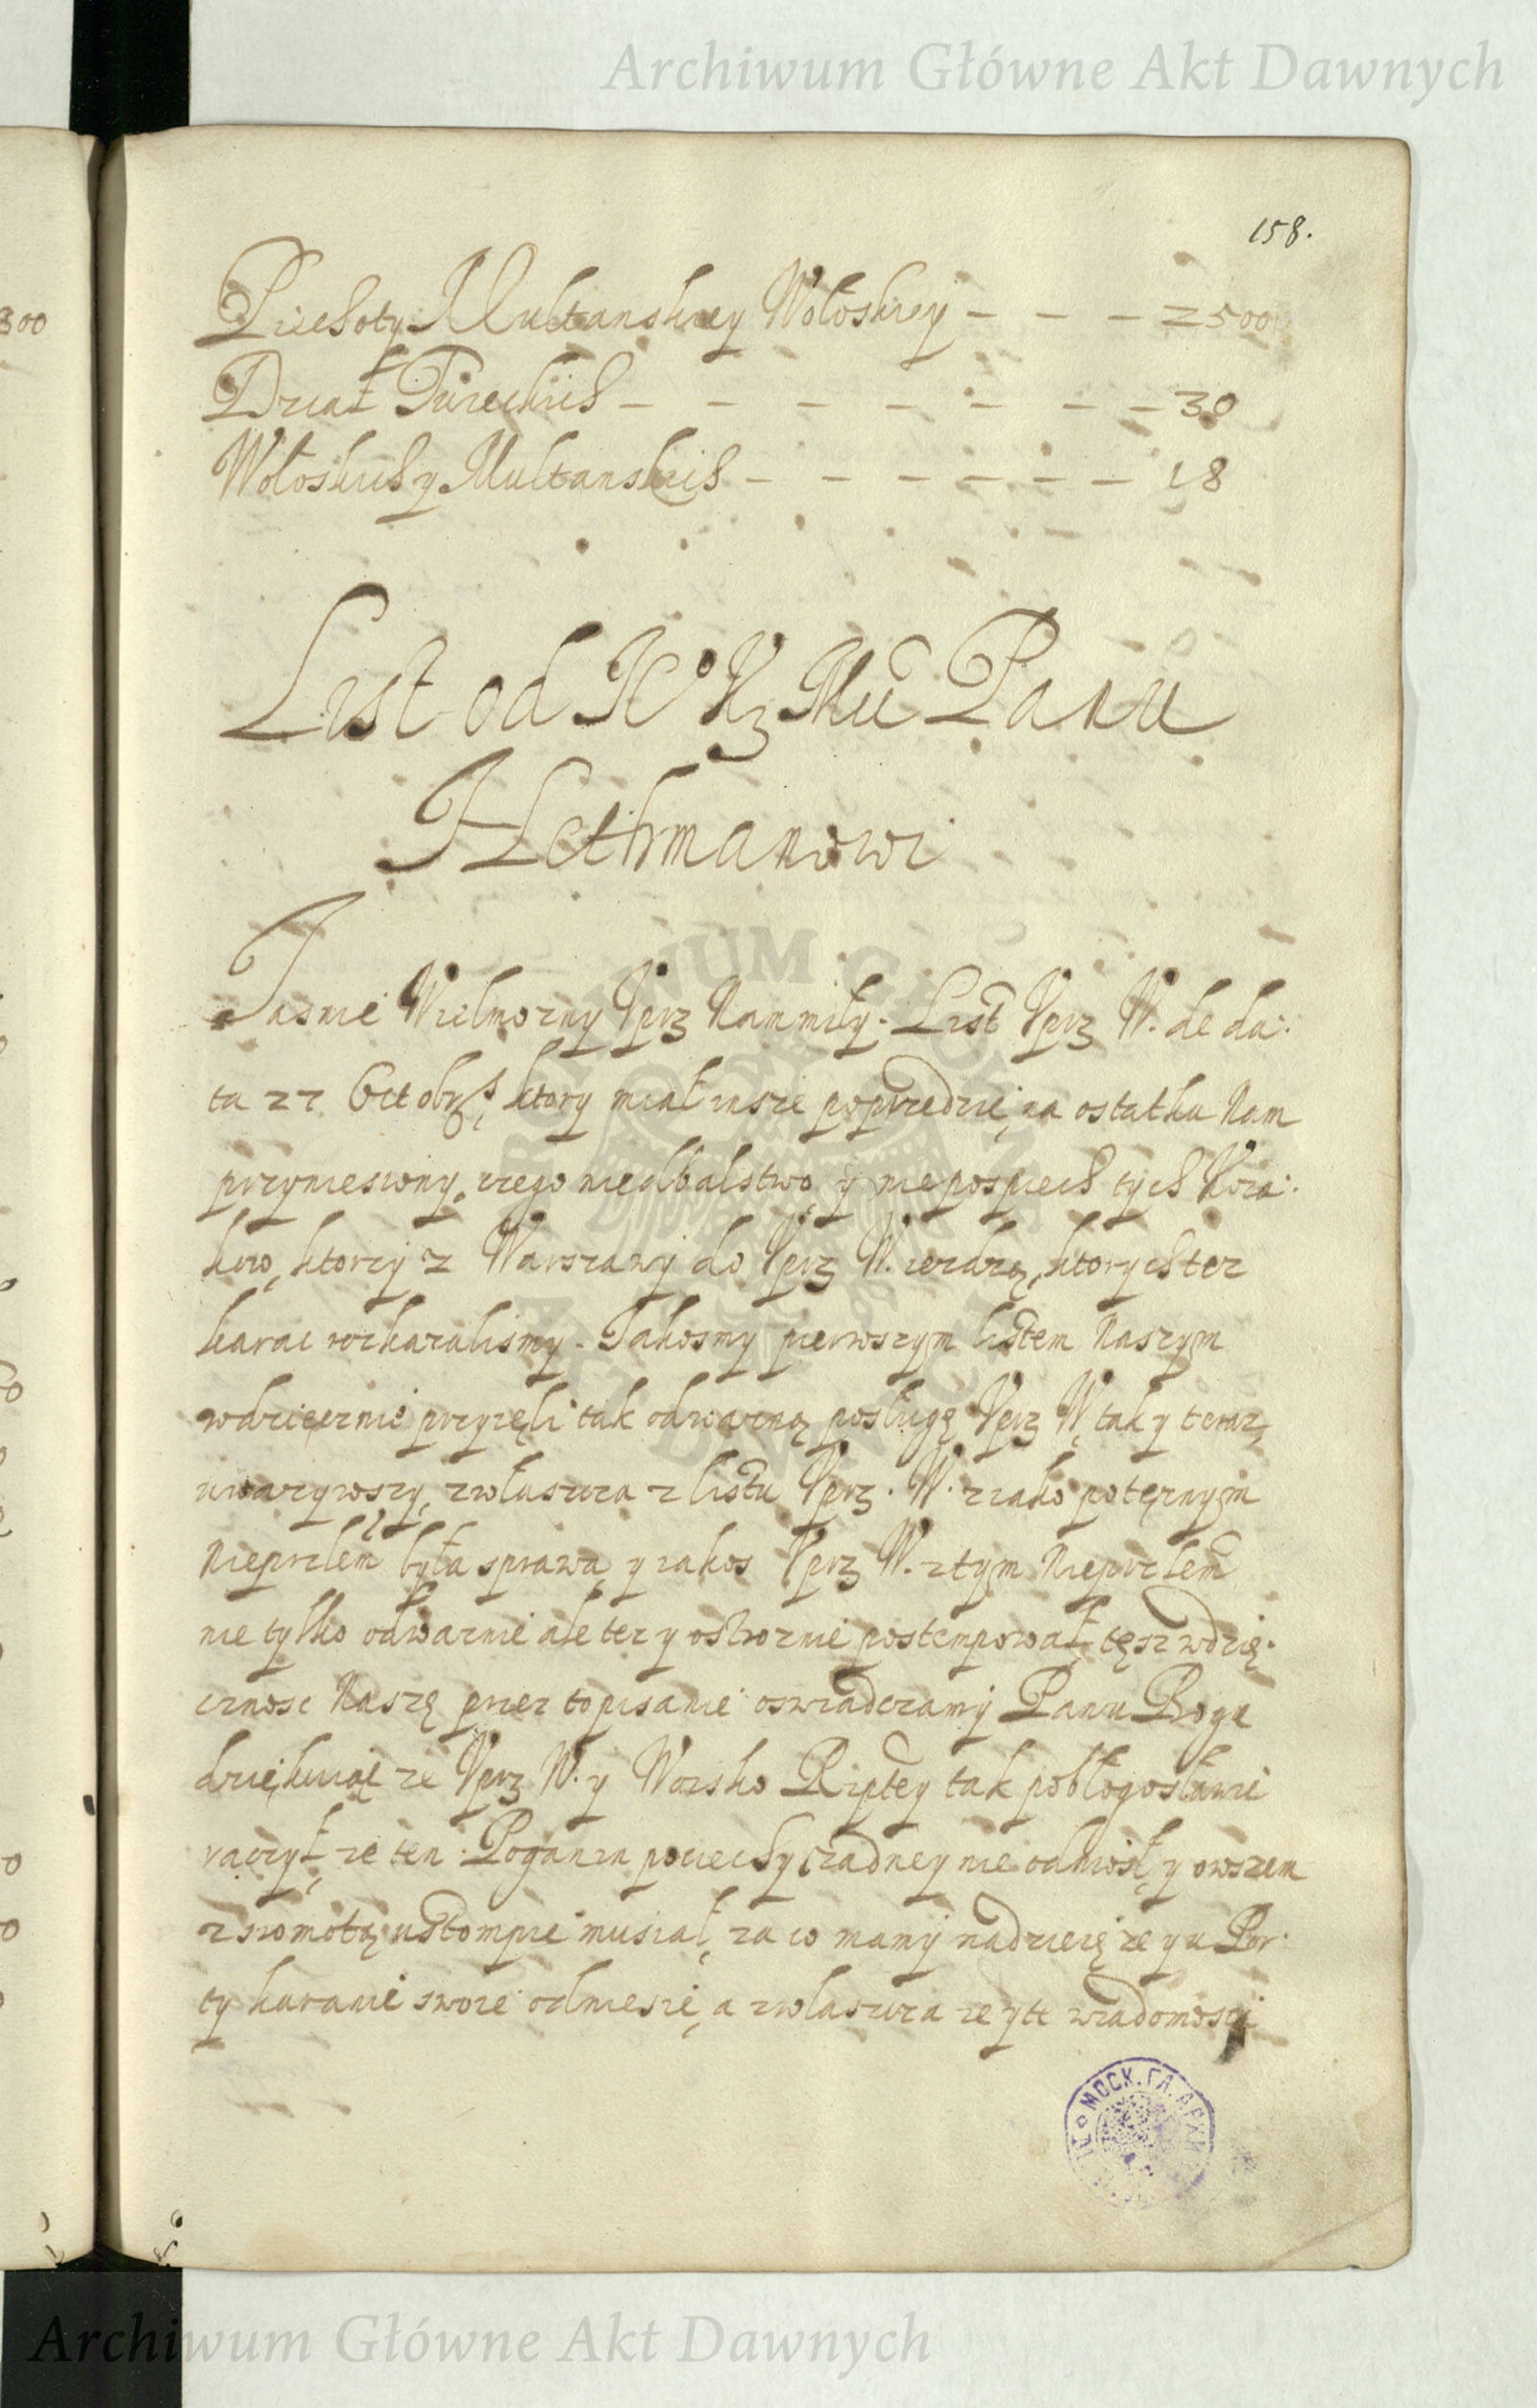 Archiwum Główne Akt Dawnych
158.
300
Piechoty Multanskiey Wołoskiey - - - 2500
Dział Tureckich - - - - - - - 30
Wołoskich y Multanskich - - - - - - 18
List od Kº Kz Mci Panu
Hethmanowi
Jasnie Wielmozny Vprz Nammiły. List Vprz W. de da:
ta 22 Octobrs, ktory miał insze poprzedzic, na ostatku Nam
przyniesiony, czego niedbalstwo y niepospiech tych Koza:
kow, ktorzy z Warszawy do Vprz W. iezdzą, ktorych tez
karac roskazalismy. Jakosmy pierwszym listem Naszym
wdzięcznie przyięli tak odwazną posługę Vprz W, tak y teraz
uwazywszy, zwłaszcza z listu Vprz. W. z iako potęznym
Nieprzlem była sprawa, y iakos Vprz W. z tym Nieprzlem
nie tylko odwaznie ale tez y ostroznie postempował, tęsz wdzię:
cznosc Naszę przez to pisanie oswiadczamy Panu Bogu
dziękuiąc ze Vprz W. y Woisko Rzptey tak pobłogosławic
raczył, ze ten Poganin pociechy zadney nie odniosł, y owszem
z sromotą ustompic musiał, za co mamy nadzieię ze y u Por:
ty karanie swoie odniesie, a zwlaszcza ze y te wiadomosci
МОСК. ГЛ. АРХИ
Archiwum Główne Akt Dawnych